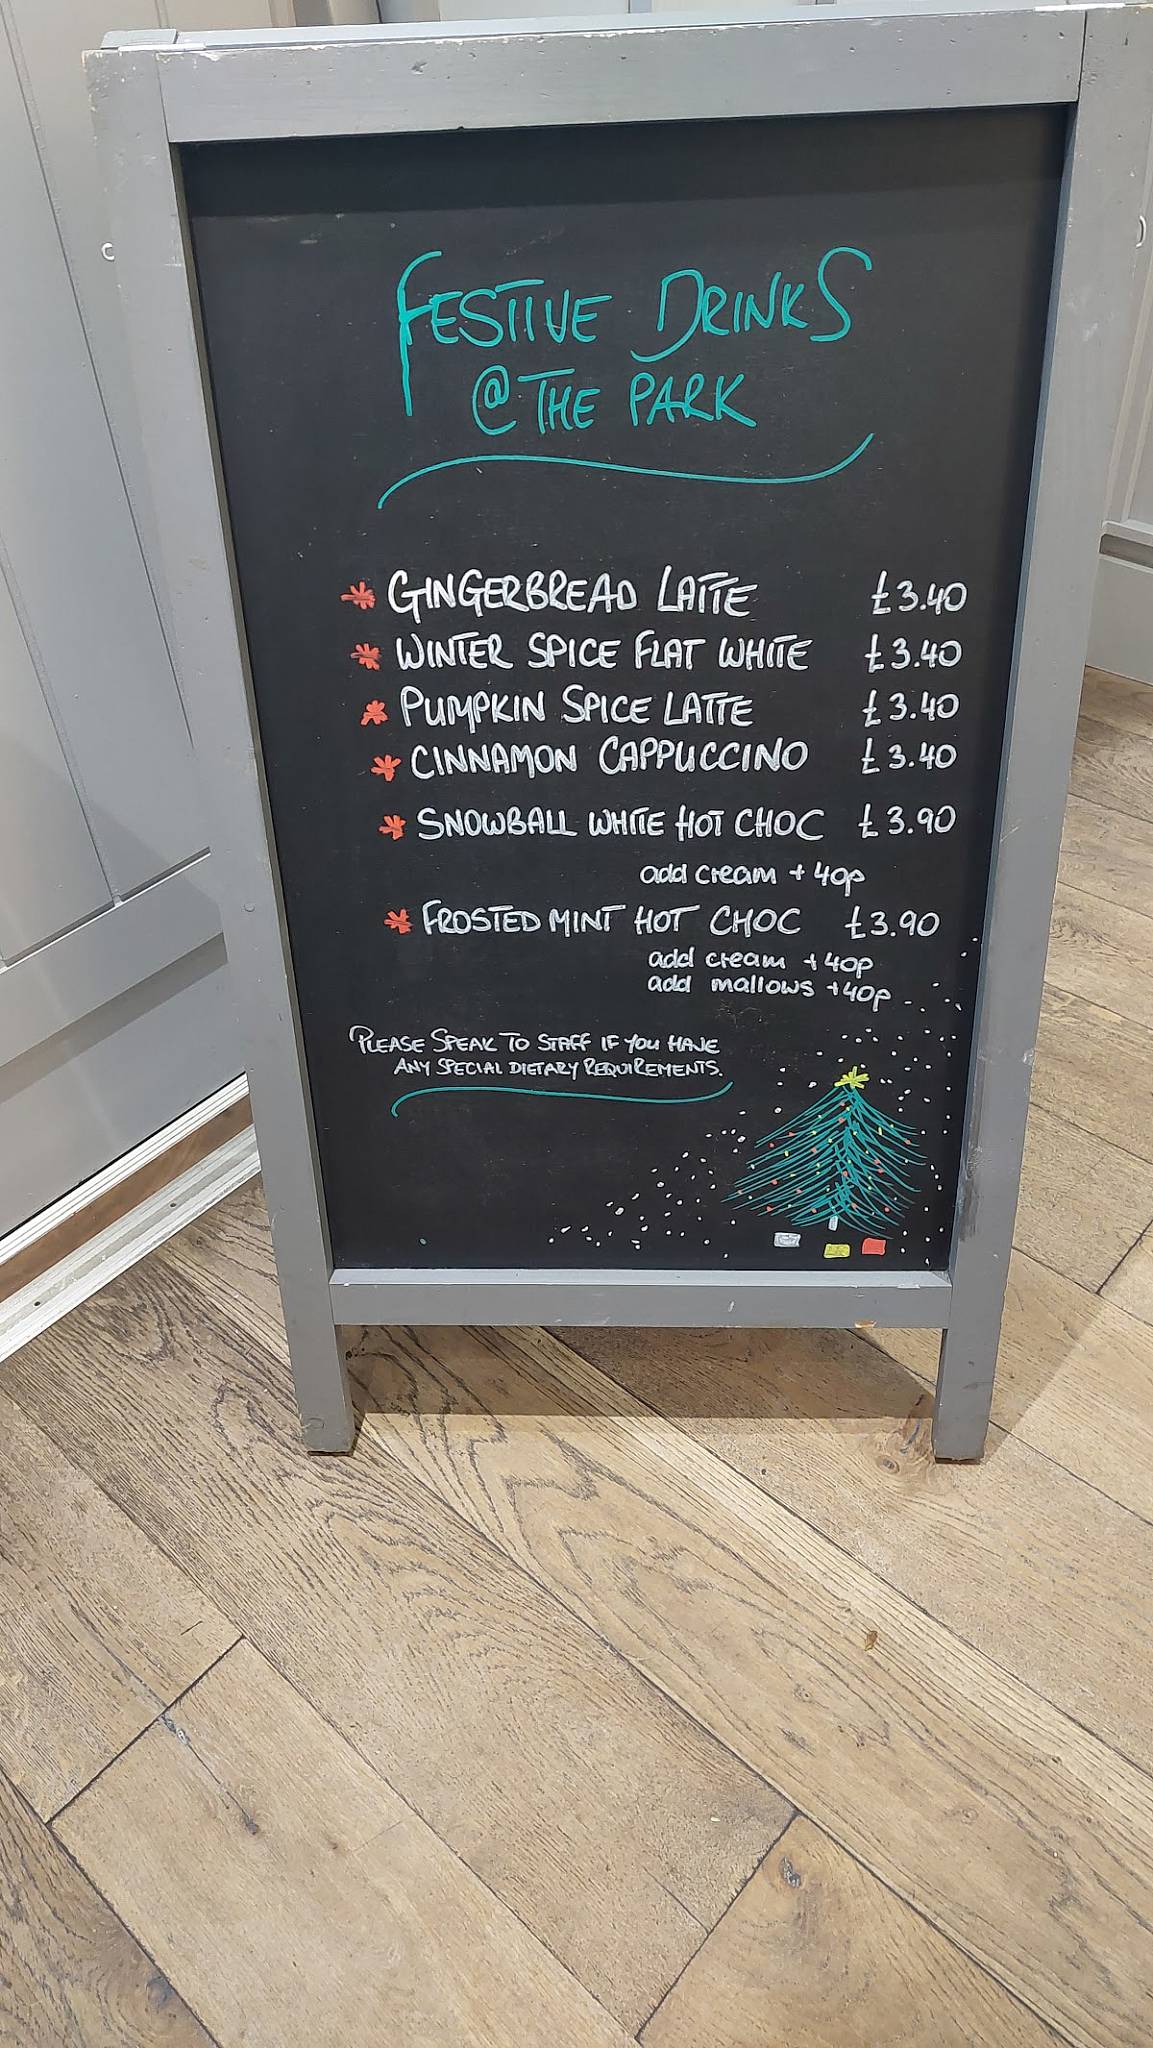 FESTIVE DRINKS
@ THE PARK
* GINGERBREAD LATTE £3.40
* WINTER SPICE FLAT WHITE £3.40
* PUMPKIN SPICE LATTE £3.40
* CINNAMON CAPPUCCINO £3.40
* SNOWBALL WHITE HOT CHOC £3.90
add cream + 40p
* FROSTED MINT HOT CHOC £3.90
add cream + 40p
add mallows + 40p
PLEASE SPEAK TO STAFF IF YOU HAVE
ANY SPECIAL DIETARY REQUIREMENTS.